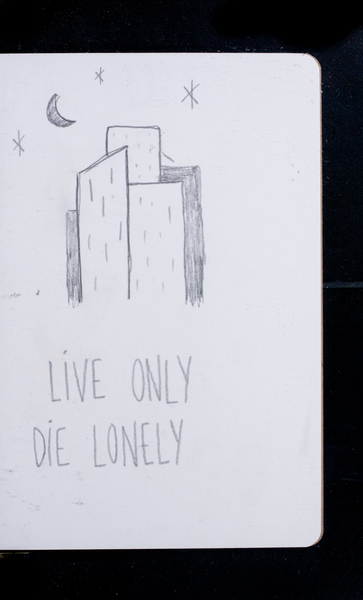 LiVE ONLY
DiE LONELY